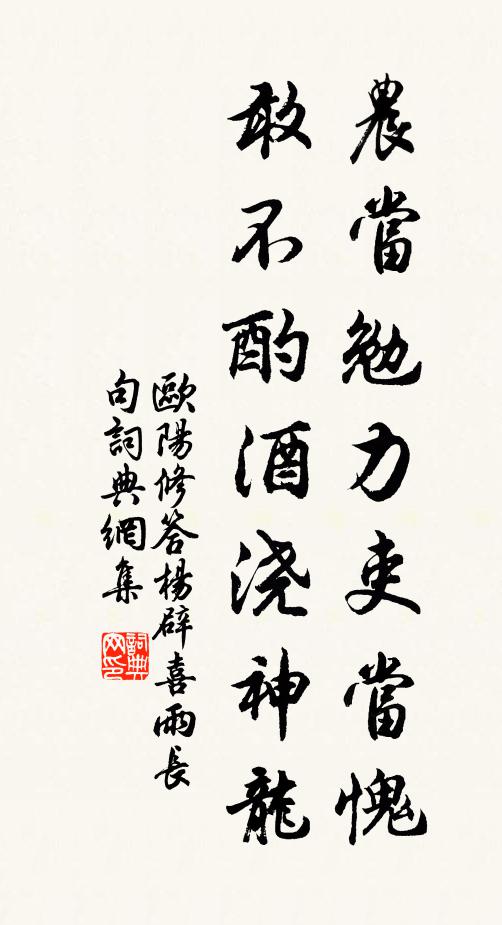 農當勉力吏當愧
敢不酌酒浇神龍
歐陽修答楊辟喜雨長
句詞典網集
詞典网印